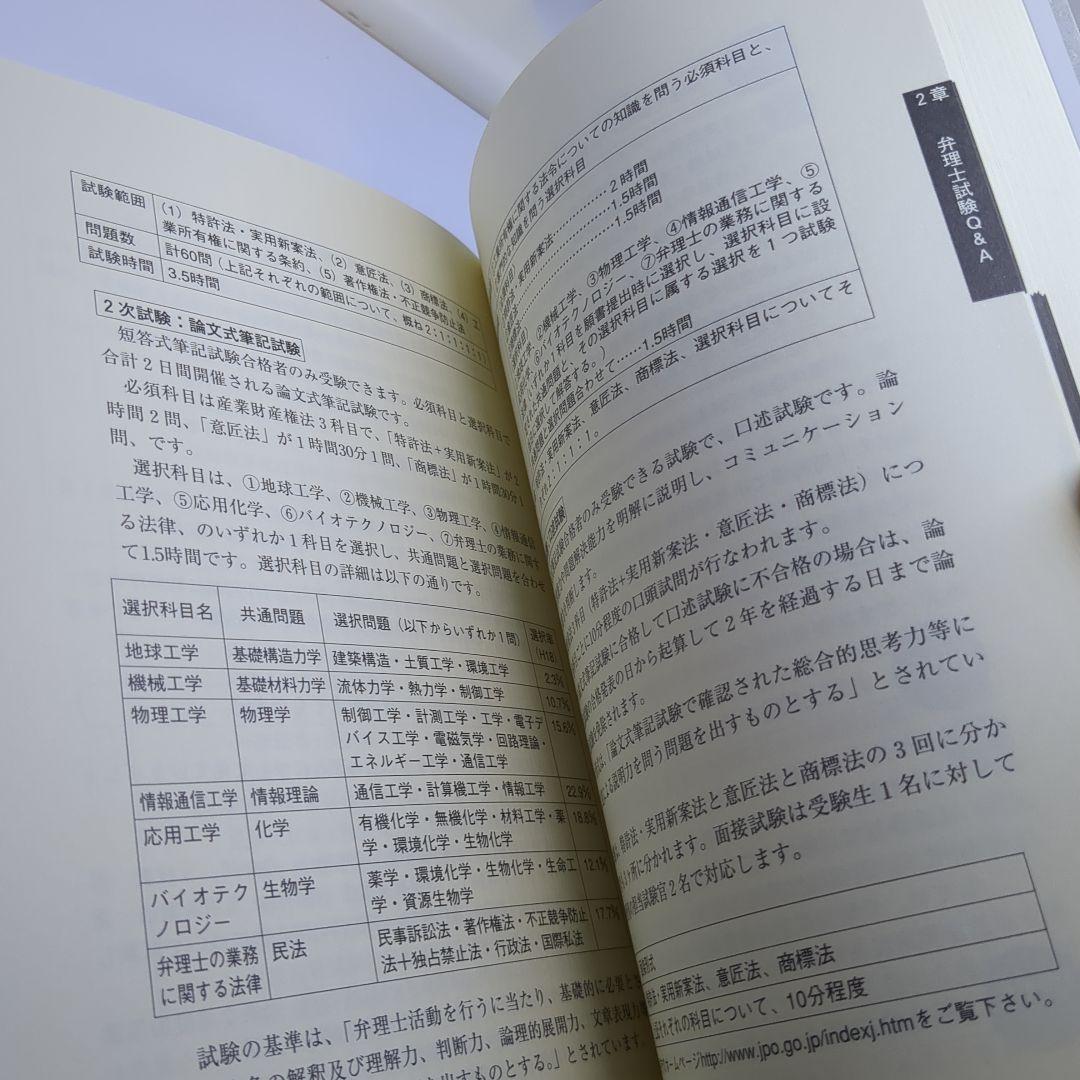 試験範囲
(1)特許法・実用新案法、(2)意匠法、(3)商標法、(4)工
業所有権に関する条約、(5)著作権法・不正競争防止法
問題数
計60問(上記それぞれの範囲について、概ね2:1:1:1:1)
試験時間
3.5時間
2次試験:論文式筆記試験
短答式筆記試験合格者のみ受験できます。必須科目と選択科目で
合計2日間開催される論文式筆記試験です。
必須科目は産業財産権法3科目で、「特許法+実用新案法」が2
時間2問、「意匠法」が1時間30分1問、「商標法」が1時間30分1
問、です。
選択科目は、①地球工学、②機械工学、③物理工学、④情報通信
工学、⑤応用化学、⑥バイオテクノロジー、⑦弁理士の業務に関す
る法律、のいずれか1科目を選択し、共通問題と選択問題を合わせ
て1.5時間です。選択科目の詳細は以下の通りです。
選択科目名 共通問題 選択問題(以下からいずれか1問) 選択率(H18)
地球工学 基礎構造力学 建築構造・土質工学・環境工学 2.3%
機械工学 基礎材料力学 流体力学・熱力学・制御工学 10.7%
物理工学 物理学 制御工学・計測工学・工学・電子デ 15.6%
バイス工学・電磁気学・回路理論・
エネルギー工学・通信工学
情報通信工学 情報理論 通信工学・計算機工学・情報工学 22.9%
応用工学 化学 有機化学・無機化学・材料工学・薬 18.8%
学・環境化学・生物化学
バイオテク 生物学 薬学・環境化学・生物化学・生命工 12.1%
ノロジー 学・資源生物学
弁理士の業務 民法 民事訴訟法・著作権法・不正競争防止 17.7%
に関する法律 法十独占禁止法・行政法・国際私法
試験の基準は、「弁理士活動を行うに当たり、基礎的に必要と
の解釈及び理解力、判断力、論理的展開力、文章表現力
出すものとする。」とされています。
に関する法令についての知識を問う必須科目と、
知識を問う選択科目
実用新案法……2時間
……1.5時間
……1.5時間
②機械工学、③物理工学、④情報通信工学、⑤
⑥バイオテクノロジー、⑦弁理士の業務に関する
いずれか1科目を願書提出時に選択し、選択科目に設
共通問題と、その選択科目に属する選択を1つ試験
選択して解答する。)
選択問題合わせて……1.5時間
実用新案法、意匠法、商標法、選択科目についてそ
:1:1:1。
試験合格者のみ受験できる試験で、口述試験です。論
問題解決能力を明解に説明し、コミュニケーション
します。
科目(特許法+実用新案法・意匠法・商標法)につ
ごとに10分程度の口頭試問が行なわれます。
式筆記試験に合格して口述試験に不合格の場合は、論
の合格発表の日から起算して2年を経過する日まで論
免除されます。
「論文式筆記試験で確認された総合的思考力等に
よる説明力を問う問題を出すものとする」とされてい
特許法・実用新案法と意匠法と商標法の3回に分か
所に分かれます。面接試験は受験生1名に対して
担当試験官2名で対応します。
実用新案法、意匠法、商標法
それぞれの科目について、10分程度
ホームページhttp://www.jpo.go.jp/indexj.htmをご覧下さい。
2章
弁理士試験Q&A